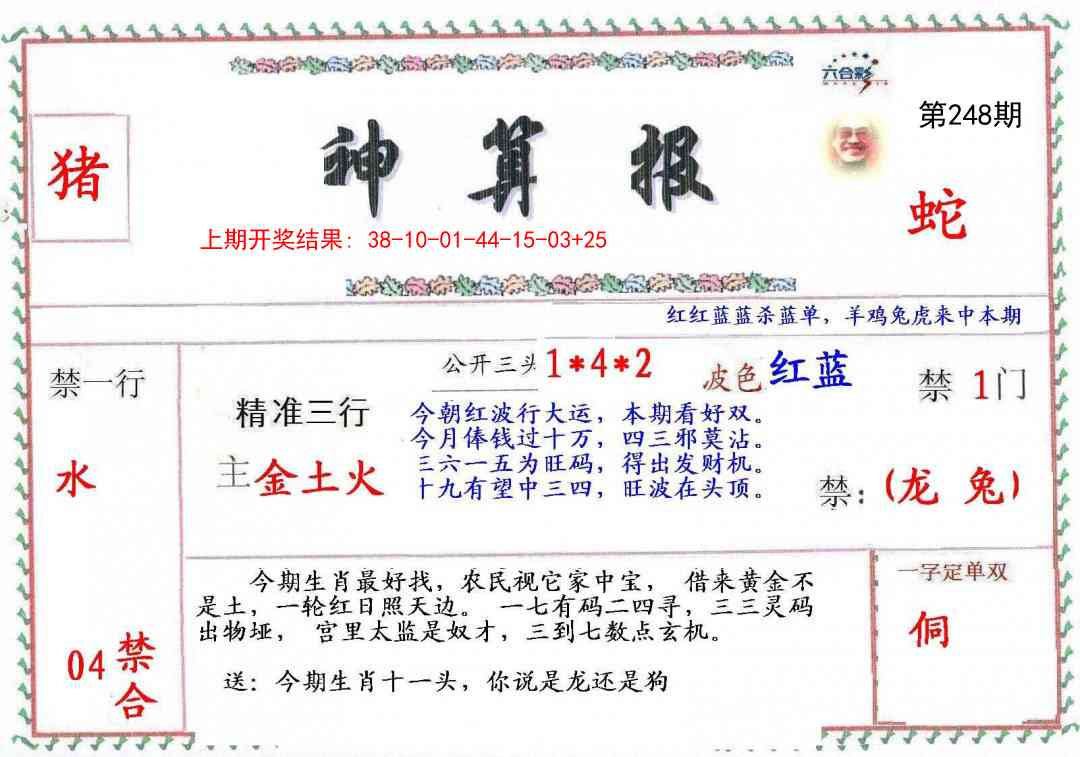 六合彩
第248期
猪
神算报
蛇
上期开奖结果：38-10-01-44-15-03+25
红红蓝蓝杀蓝单，羊鸡兔虎来中本期
禁一行
公开三头1*4*2
波色红蓝
禁 1门
精准三行
今朝红波行大运，本期看好双。
今月俸钱过十万，四三邪莫沾。
三六一五为旺码，得出发财机。
十九有望中三四，旺波在头顶。
水
主金土火
禁:(龙 兔)
今期生肖最好找，农民视它家中宝， 借来黄金不
是土，一轮红日照天边。 一七有码二四寻，三三灵码
出物垭， 宫里太监是奴才，三到七数点玄机。
送：今期生肖十一头，你说是龙还是狗
一字定单双
侗
04禁
合